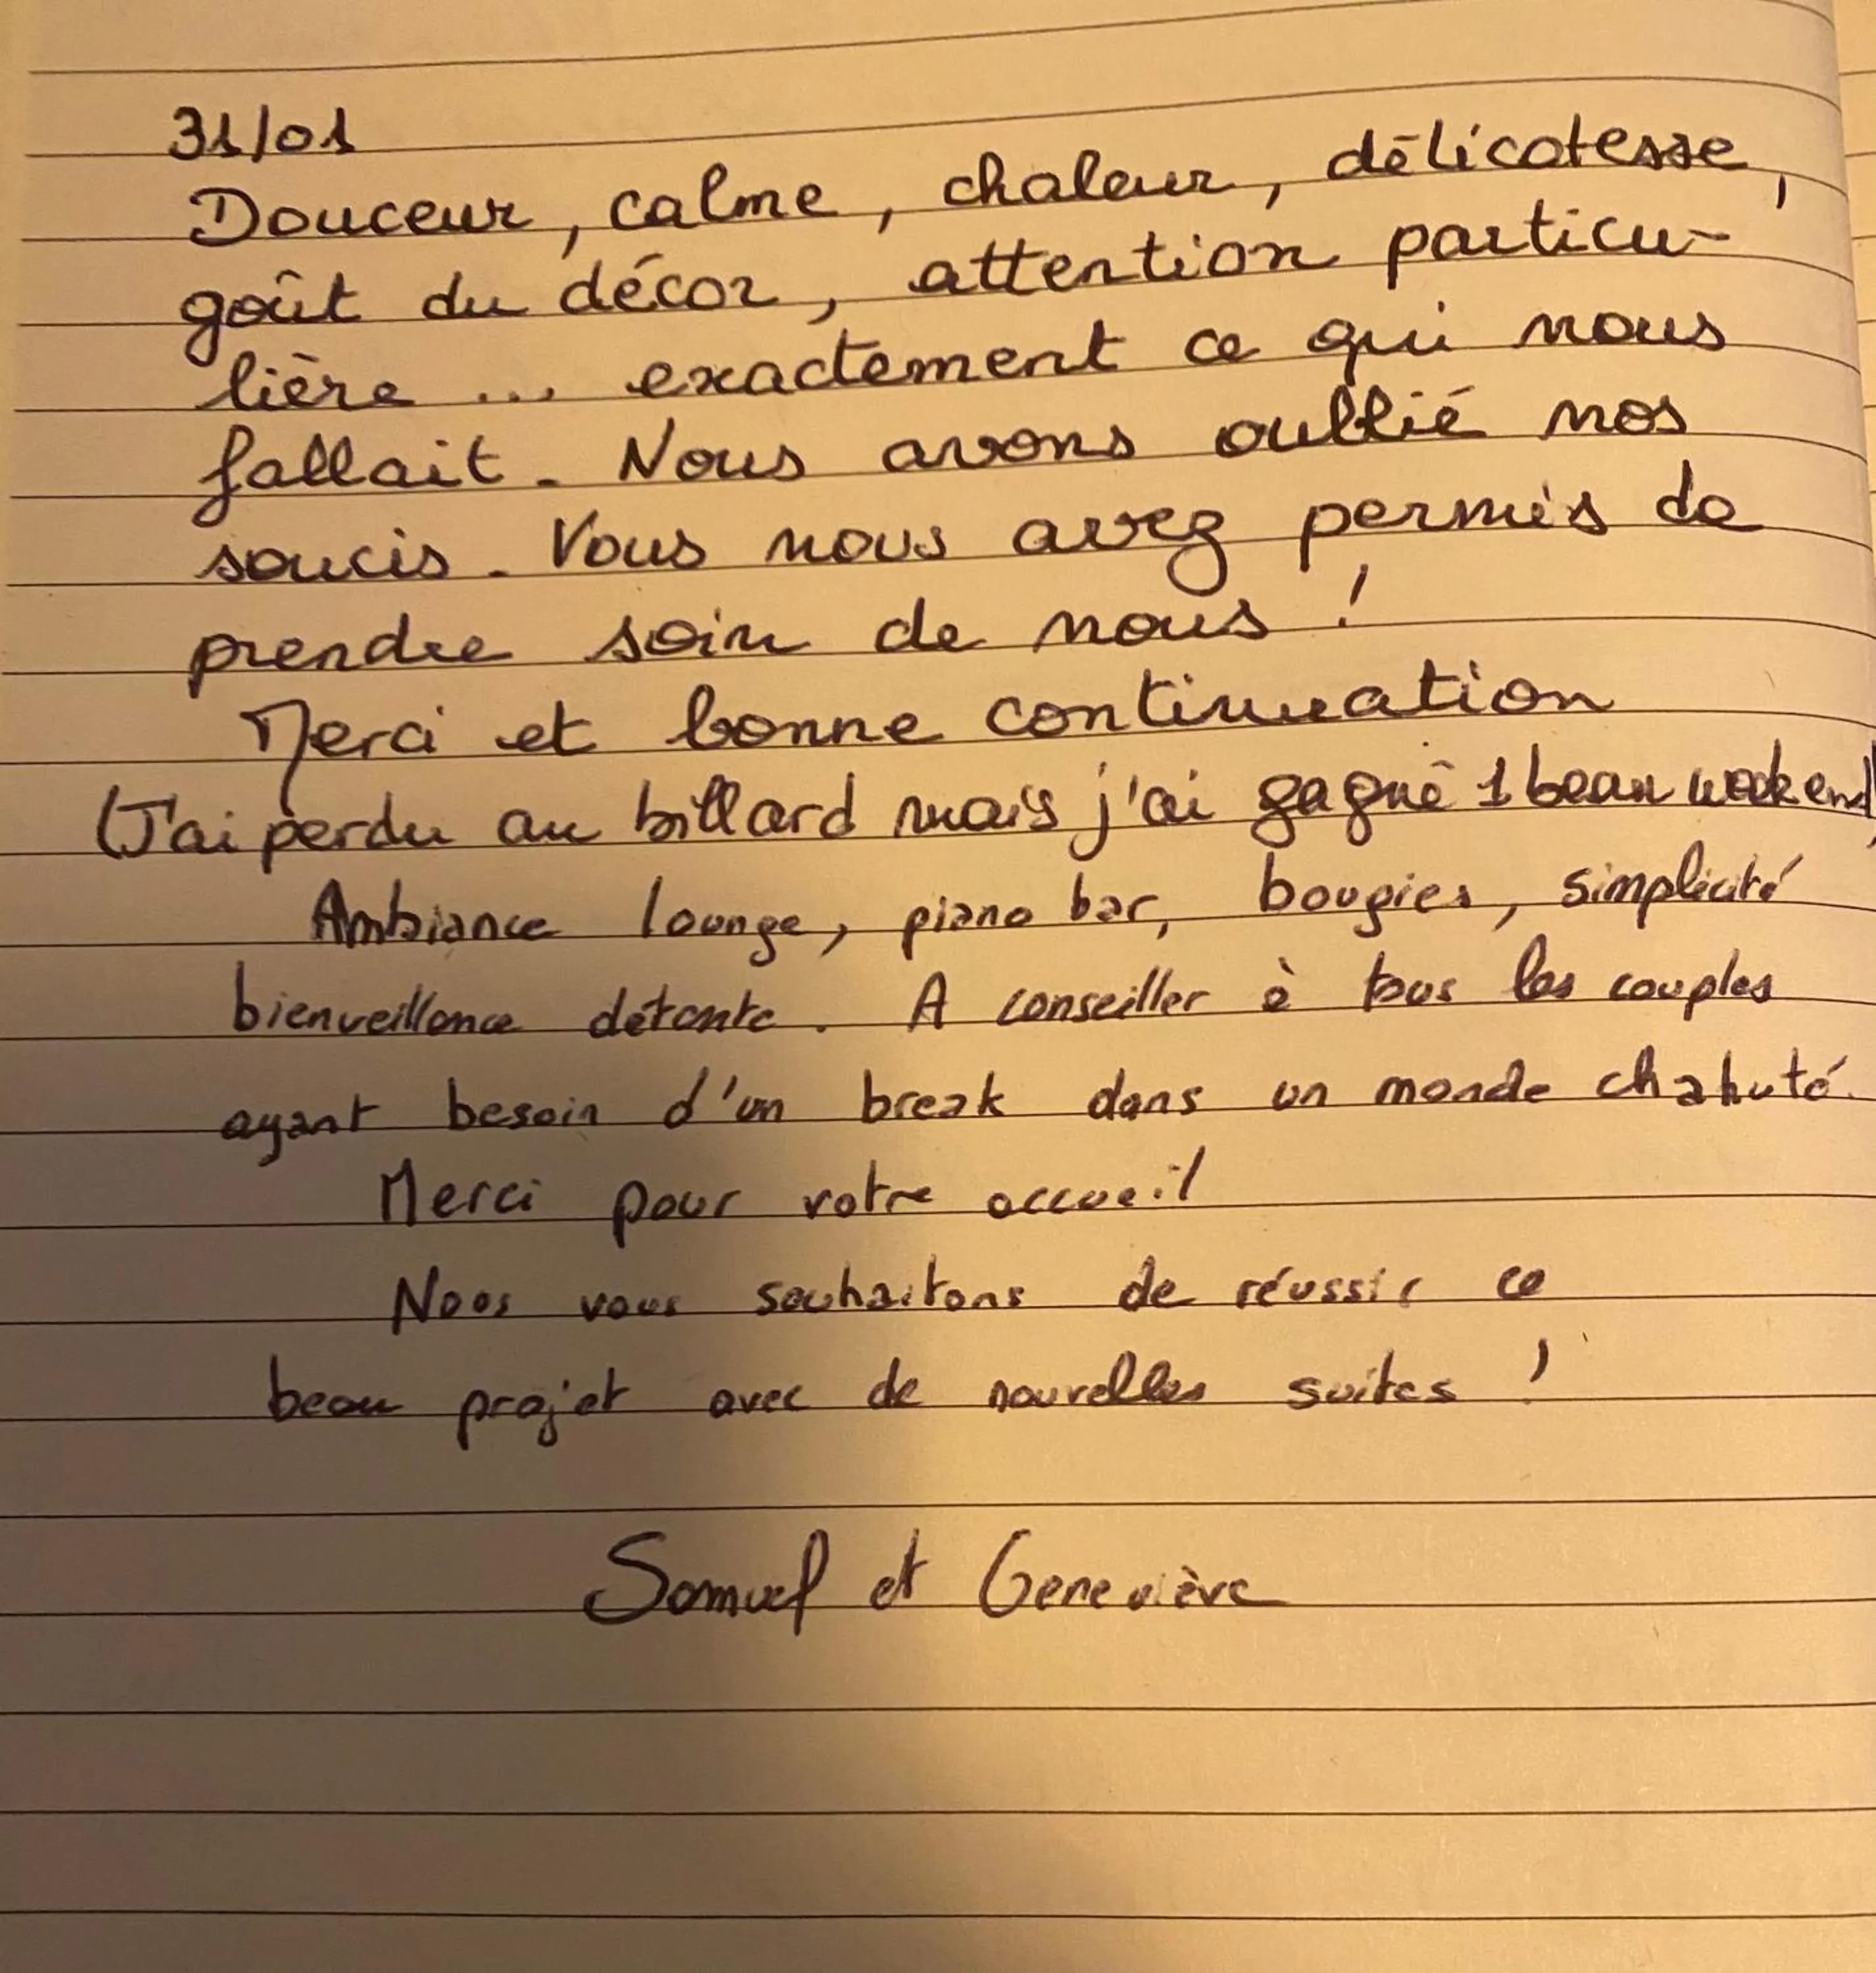 31/01
Douceur, calme, chaleur, délicatesse,
goût du décor, attention particu-
lière ... exactement ce qui nous
fallait. Nous avons oublié nos
soucis. Vous nous avez permis de
prendre soin de nous !
Merci et bonne continuation
(J'ai perdu au billard mais j'ai gagné 1 beau weekend)
Ambiance lounge, piano bar, bougies, simplicité
bienveillance détente. A conseiller à tous les couples
ayant besoin d'un break dans un monde chahuté.
Merci pour votre accueil
Nous vous souhaitons de réussir ce
beau projet avec de nouvelles suites !
Samuel et Geneviève